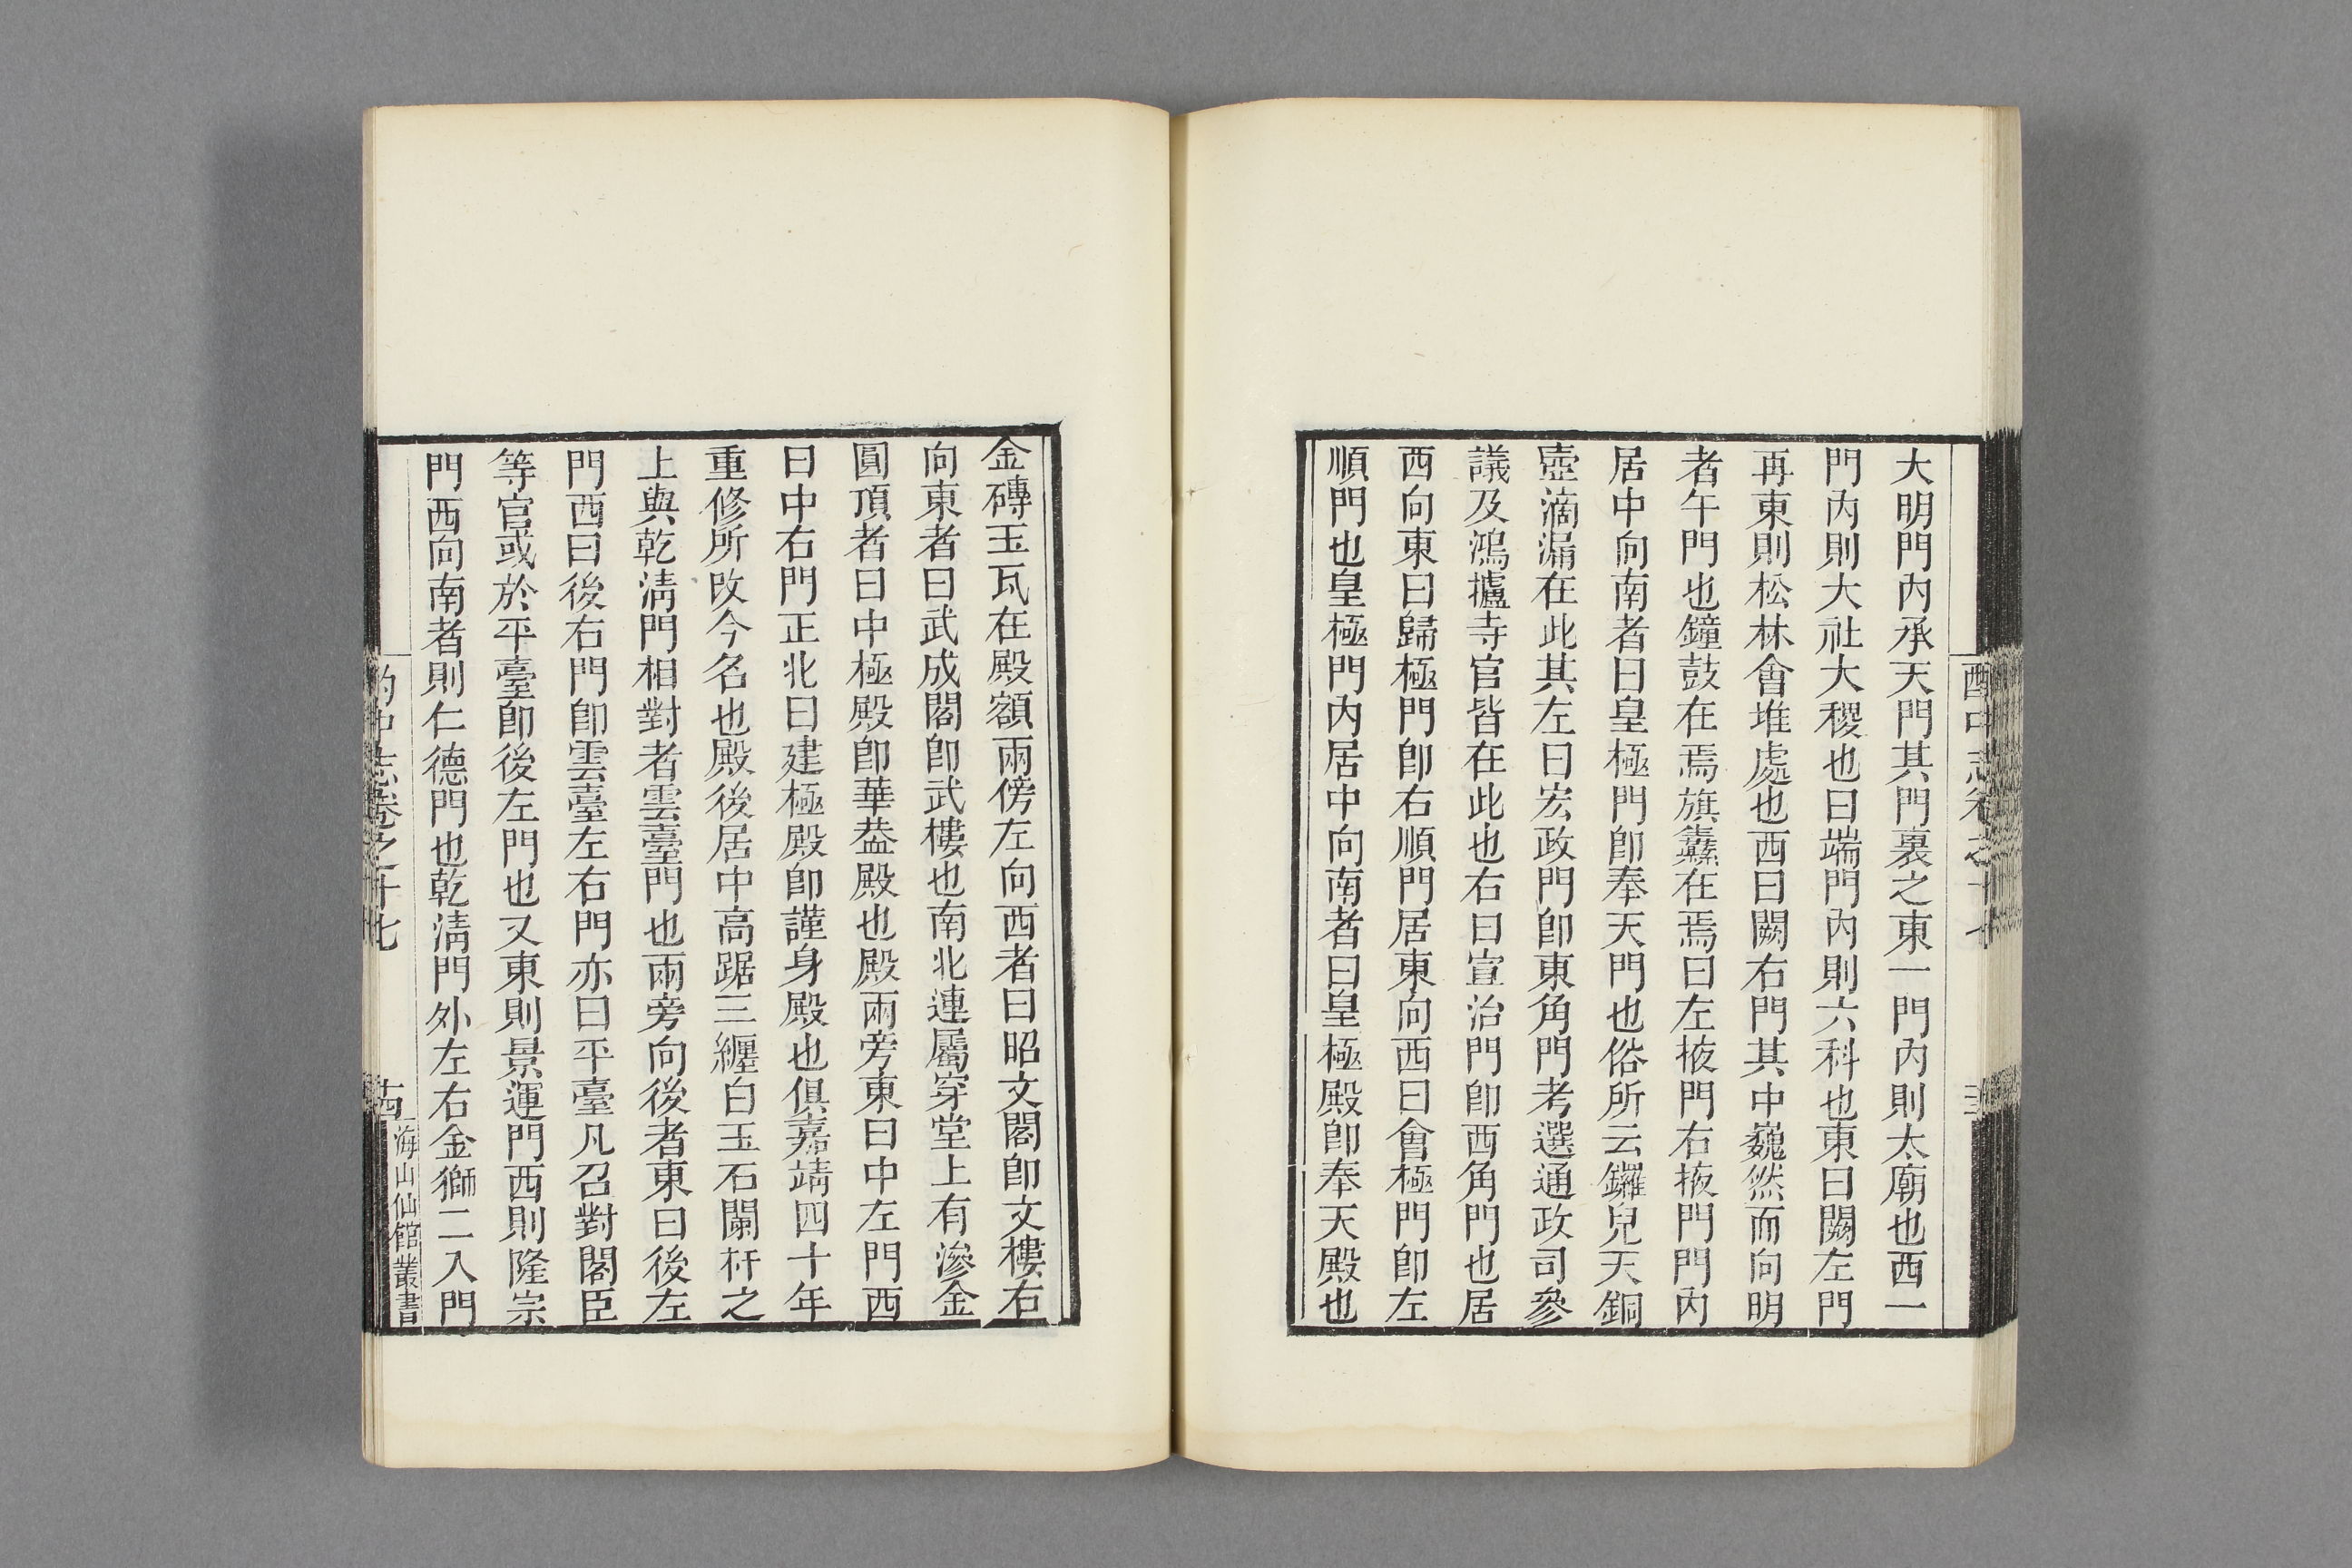 大明門內承天門其門裏之東一門內則太廟也西一
門內則大社大稷也曰端門內則六科也東曰闕左門
再東則松林會堆處也西曰闕右門其中巍然而向明
者午門也鐘鼓在焉旗纛在焉曰左掖門右掖門門內
居中向南者曰皇極門卽奉天門也俗所云鑼兒天銅
壺滴漏在此其左曰宏政門卽東角門考選通政司參
議及鴻攎寺官皆在此也右曰宣治門卽西角門也居
西向東曰歸極門卽右順門居東向西曰會極門卽左
順門也皇極門內居中向南者曰皇極殿卽奉天殿也
金磚玉瓦在殿額兩傍左向西者曰昭文閣卽文樓右
向東者曰武成閣卽武樓也南北連屬穿堂上有滲金
圓頂者曰中極殿卽華葢殿也殿兩旁東曰中左門西
曰中右門正北曰建極殿卽謹身殿也俱嘉靖四十年
重修所改今名也殿後居中高踞三纏白玉石闌杆之
上與乾淸門相對者雲臺門也兩旁向後者東曰後左
門西曰後右門卽雲臺左右門亦曰平臺凡召對閣臣
等官或於平臺卽後左門也又東則景運門西則隆宗
門西向南者則仁德門也乾淸門外左右金獅二入門
酌中志卷之十七
海山仙館叢書